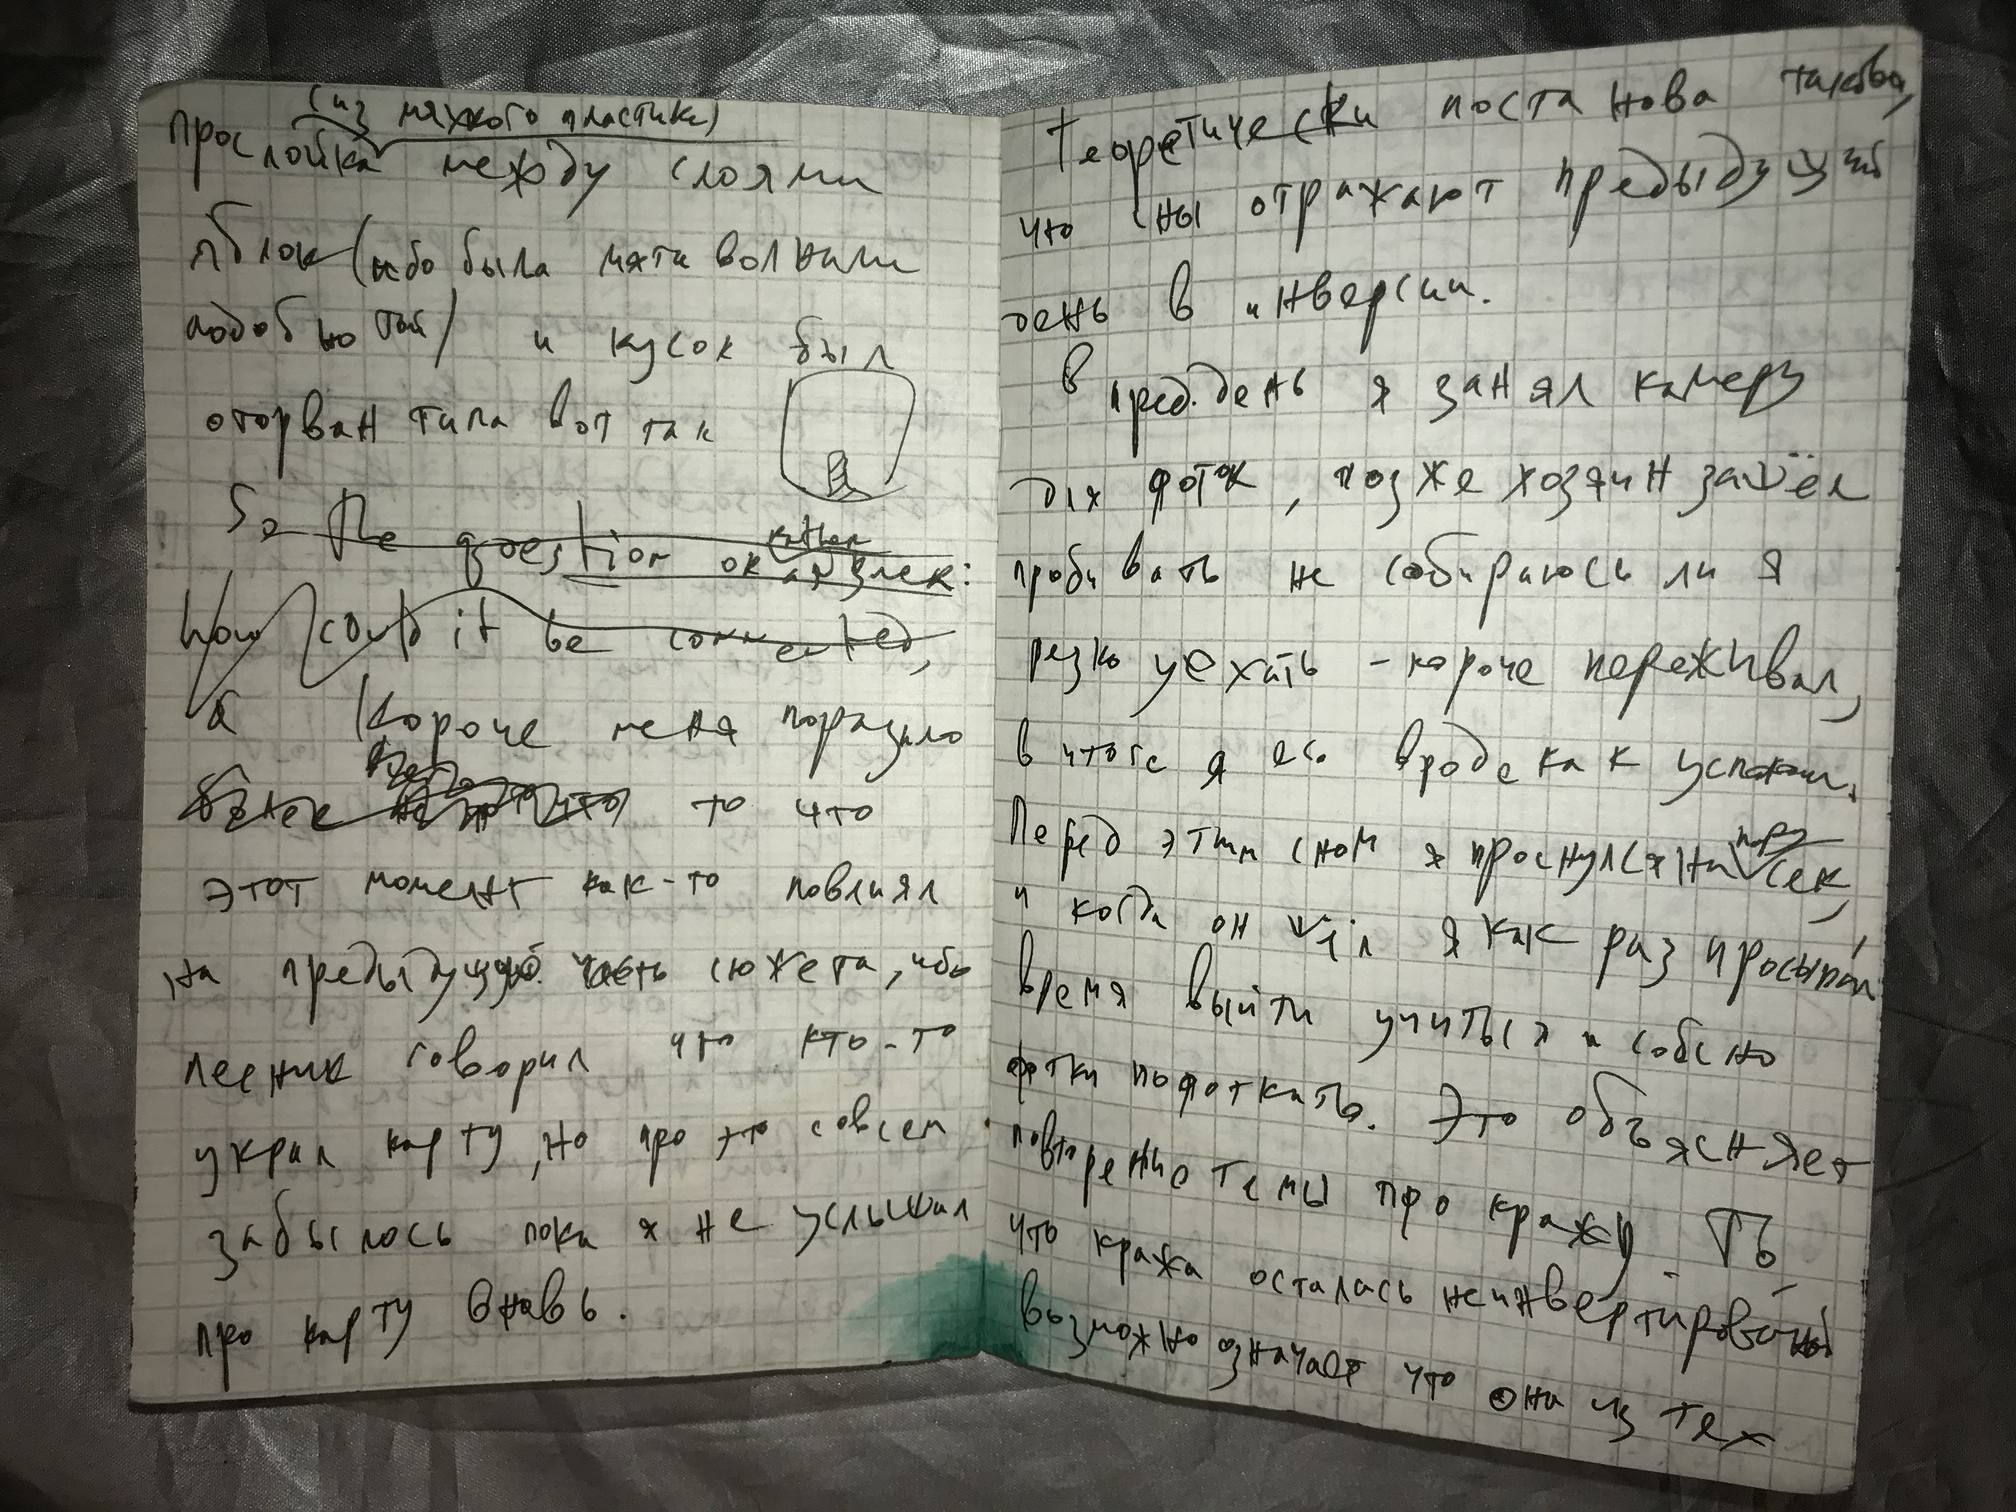 (из мягкого пластика)
прослойка между слоями
яблок (ибо была мята волнами
подобно той) и кусок был
оторван типа вот так
So the question
How could it be connected,
Короче меня поразило
то что
этот момент как-то повлиял
на предыдущую часть сюжета, ибо
лесник говорил что кто-то
украл карту, но про это совсем
забылось пока я не услышал
про карту вновь.
Теоретически постанова такова,
что сны отражают предыдущий
день в инверсии.
В пред. день я занял камеру
для фоток, позже хозяин зашёл
пробивать не собираюсь ли я
резко уехать - короче переживал,
в итоге я его вроде как успокоил.
Перед этим сном я проснулся на пару сек,
и когда он я как раз просыпал
время выйти учиться и собсно
фотки пофоткать. Это объясняет
повторение темы про кражу. ТЪ
что кража осталась неинвертированной
возможно означает что она из тех